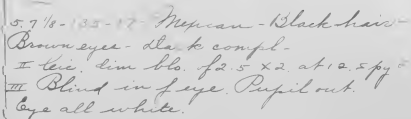 5.7 1/8 - 135 - 17 - Mexican - Black hair -
Brown eyes - Da k compl -
II Cic. dim blo. f 2.5 X 2. at 12.5 py =
III Blind in f eye. Pupil out.
Eye all white.